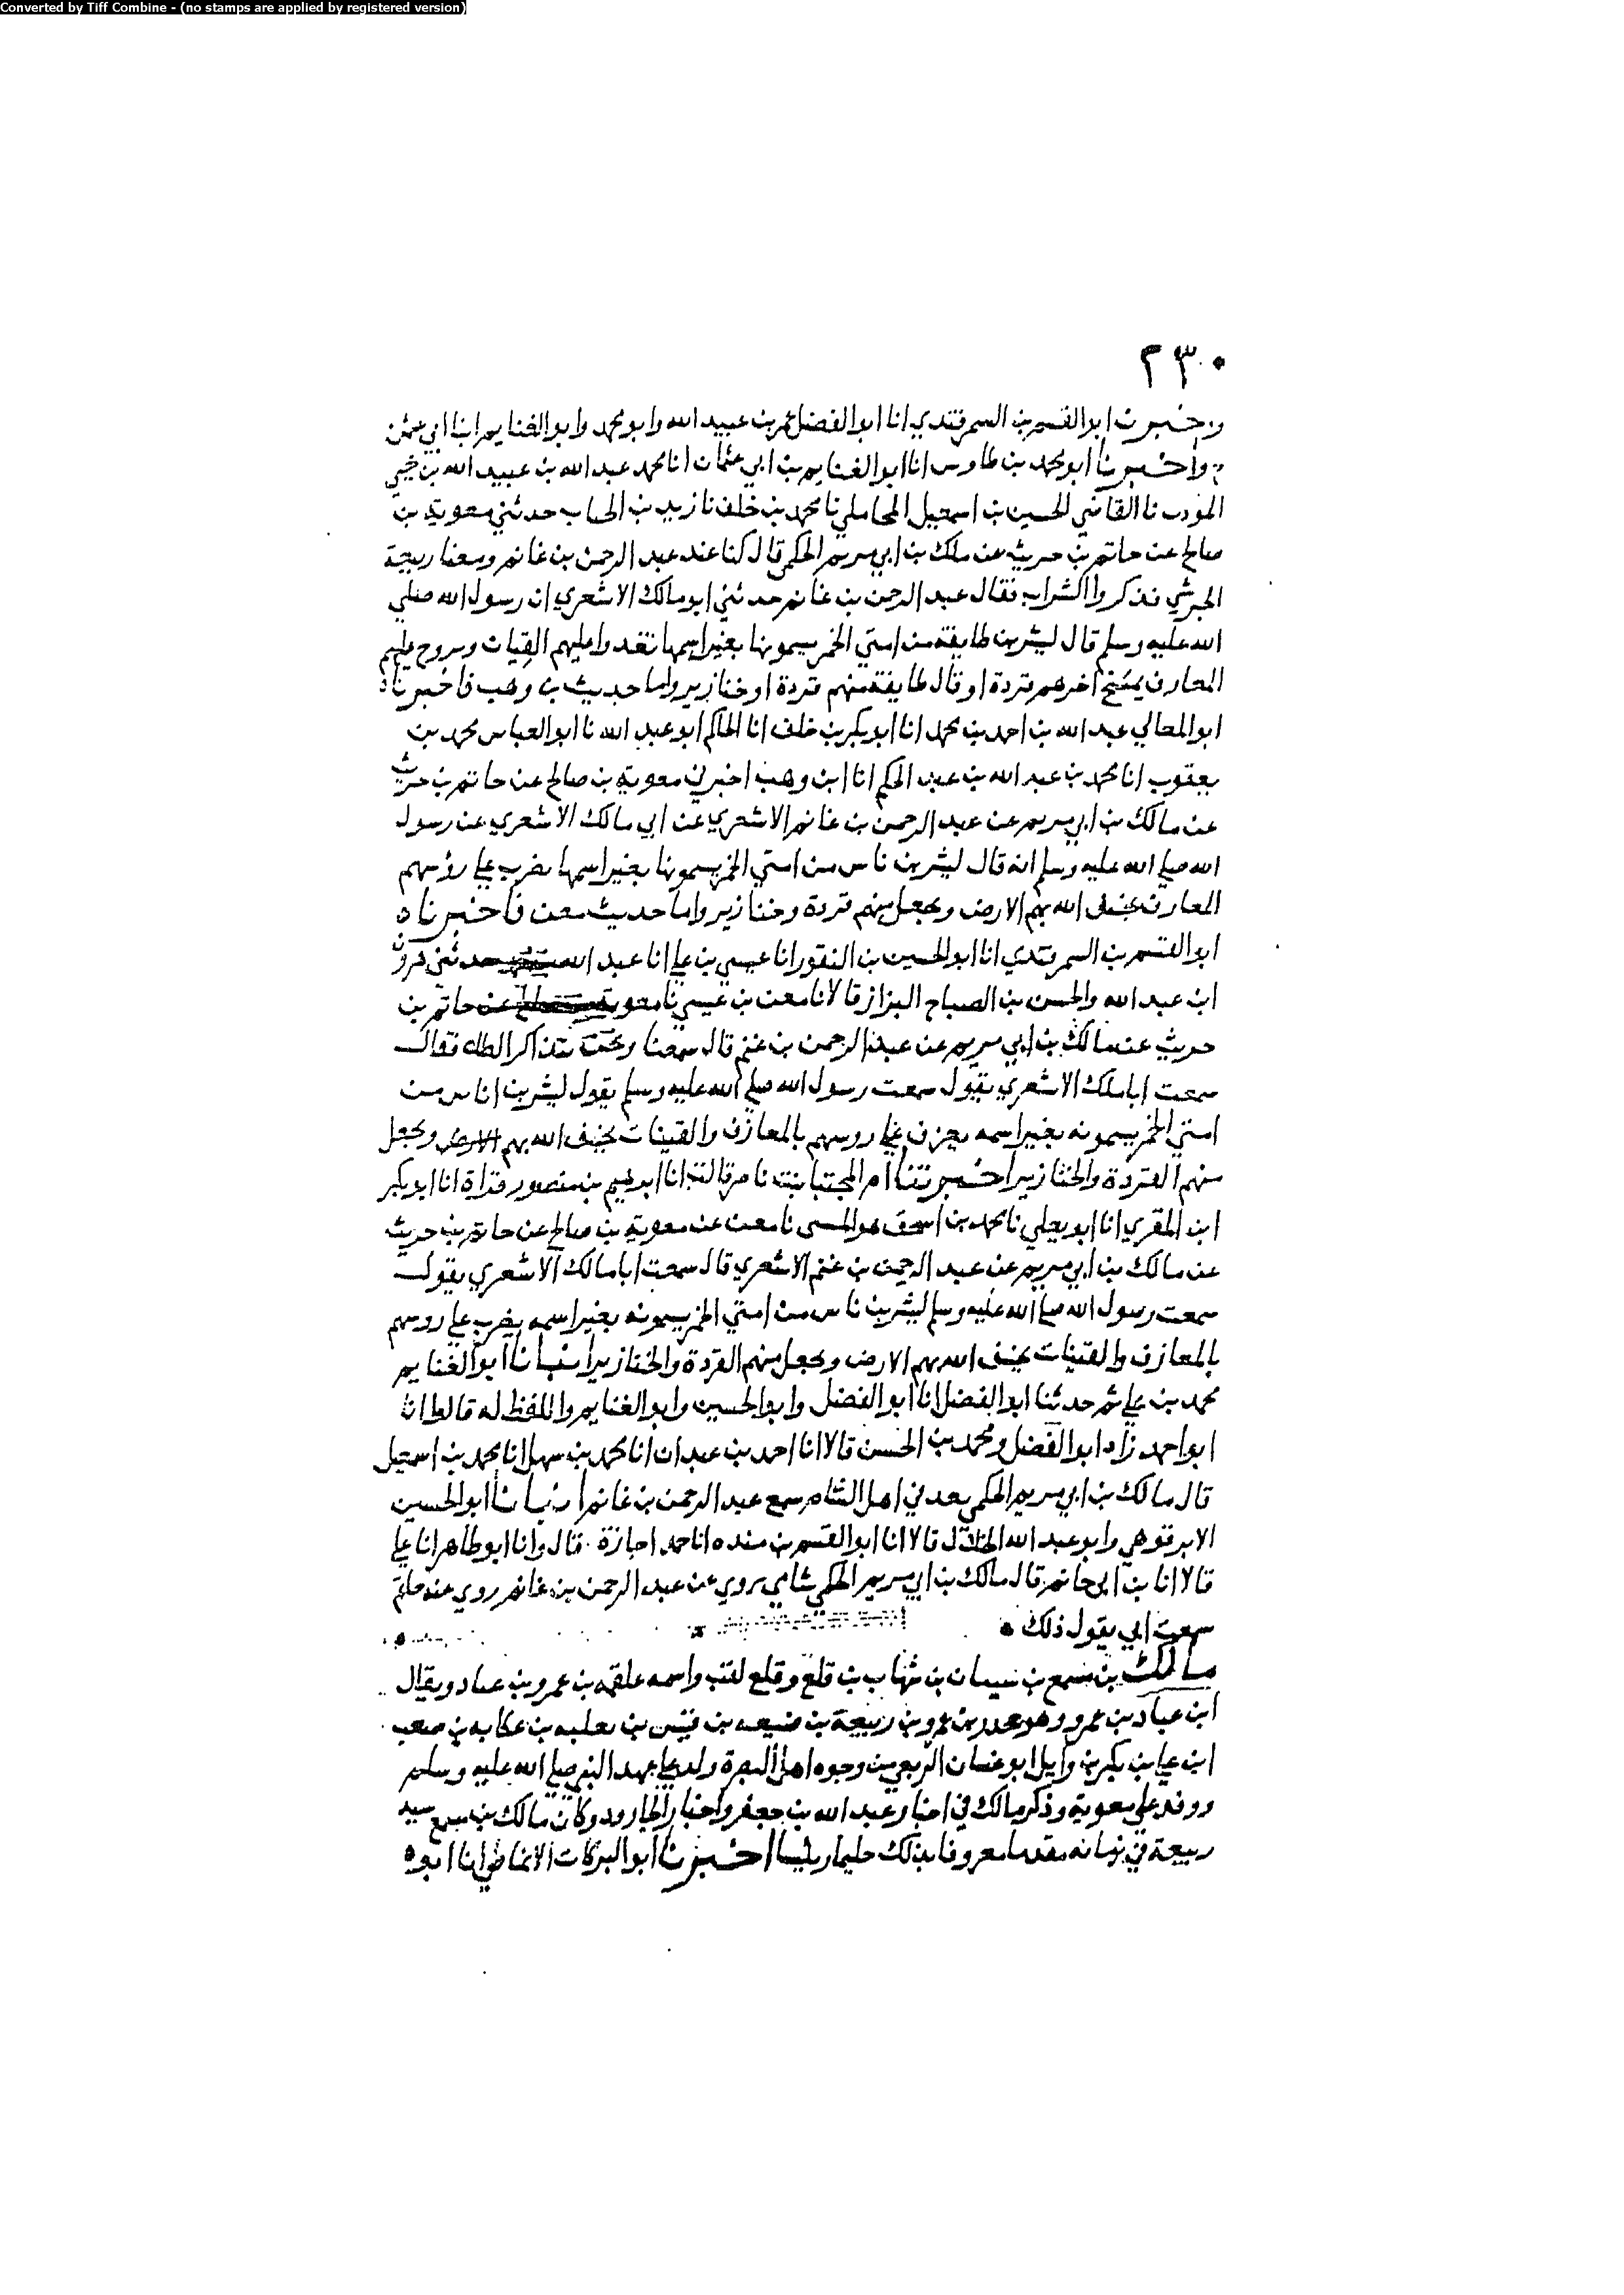 Converted by Tiff Combine - (no stamps are applied by registered version)
٢٣٠
واخبرنا ابو القسم بن السمرقندي انا ابو الفضل عمر بن عبيد الله وابو محمد وابو الغنايم ابنا ابي عثمن
واخبرنا ابو محمد بن طاوس انا ابو الغنايم بن ابي عثمان انا محمد عبد الله بن عبيد الله بن يحيى
المؤدب نا القاضي الحسين بن اسمعيل المحاملي نا محمد بن خلف نا زيد بن الحباب حدثني معوية بن
صالح عن حاتم بن حريث عن ملك بن ابي مريم الحكمي قال كنا عند عبد الرحمن بن غانم ومعنا ربيعة
الجرشي فذكروا الشراب فقال عبد الرحمن بن غانم حدثني ابو مالك الاشعري ان رسول الله صلي
الله عليه وسلم قال ليشربن طايفة من امتي الخمر يسمونها بغير اسمها تغدوا عليهم القيات وتروح عليهم
المعازف يمسخ اخرهم قردة او قال طايفة منهم قردة او خنازير واما حديث بن وهب فاخبرناه
ابو المعالي عبد الله بن احمد بن محمد انا ابو بكر بن خلف انا الحاكم ابو عبد الله نا ابو العباس محمد بن
يعقوب انا محمد بن عبد الله بن عبد الحكم انا ابن وهب اخبرني معوية بن صالح عن حاتم بن حريث
عن مالك بن ابي مريم عن عبد الرحمن بن غانم الاشعري عن ابي مالك الاشعري عن رسول
الله صلي الله عليه وسلم انه قال ليشربن ناس من امتي الخمر يسمونها بغير اسمها يضرب علي رؤسهم
المعازف يخسف الله بهم الارض ويجعل منهم قردة وخنازير واما حديث معن فاخبرناه
ابو القسم بن السمرقندي انا ابو الحسين بن النقور انا عيسي بن علي انا عبد الله حدثني هرون
ابن عبد الله والحسن بن الصباح البزاز قالا نا معن بن عيسي نا معوية عن حاتم بن
حريث عن مالك بن ابي مريم عن عبد الرحمن بن غنم قال سمعنا ونحن نتذاكر الطلا فقال
سمعت ابا ملك الاشعري يقول سمعت رسول الله صلي الله عليه وسلم يقول ليشربن اناس من
امتي الخمر يسمونه بغير اسمه يعزف علي روسهم بالمعازف والقينات يخسف الله بهم الارض ويجعل
منهم القردة والخنازير اخبرتنا ام المجتبا بنت ناصر قالت انا ابرهيم بن منصور قراة انا ابو بكر
ابن المقري انا ابو يعلي نا محمد بن اسحق هو المسى نا معن عن معوية بن صالح عن حاتم بن حريث
عن مالك بن ابي مريم عن عبد الرحمن بن غنم الاشعري قال سمعت ابا مالك الاشعري يقول
سمعت رسول الله صلي الله عليه وسلم ليشربن ناس من امتي الخمر يسمونه بغير اسمه يضرب علي روسهم
بالمعازف والقينات يخسف الله بهم الارض ويجعل منهم القردة والخنازير انبانا ابو الغنايم
محمد بن علي ثم حدثنا ابو الفضل انا ابو الفضل وابو الحسين وابو الغنايم واللفظ له قالوا انا
ابو احمد زاد ابو الفضل ومحمد بن الحسن قالا انا احمد بن عبدان انا محمد بن سهل انا محمد بن اسمعيل
قال مالك بن ابي مريم الحكمي يعد في اهل الشام سمع عبد الرحمن بن غانم انبانا ابو الحسين
الابرقوهي وابو عبد الله الخلال قالا انا ابو القسم بن منده انا حمد اجازة قال وانا ابو طاهر انا علي
قالا انا بن ابي حاتم قال مالك بن ابي مريم الحكمي شامي يروي عن عبد الرحمن بن غانم روي عنه حاتم
سمعت ابي يقول ذلك
مالك بن مسمع بن سيسان بن شهاب بن قلع وقلع لقب واسمه علقمه بن عمرو بن عباد ويقال
ابن عباد بن عمرو وهو جحدر بن عمرو بن ربيعة بن ضبيعه بن قيس بن ثعلبه بن عكابه بن صعب
ابن علي بن بكر بن وايل ابو غسان الربعي من وجوه اهل البصرة ولد علي عهد النبي صلي الله عليه وسلم
ووفد علي معوية وذكر مالك في اخبار عبد الله بن جعفر واخبار الجارود وكان مالك بن مسمع سيد
ربيعة في زمانه مقدما معروفا بذلك حليما رئيسا اخبرنا ابو البركات الانماطي انا ابو